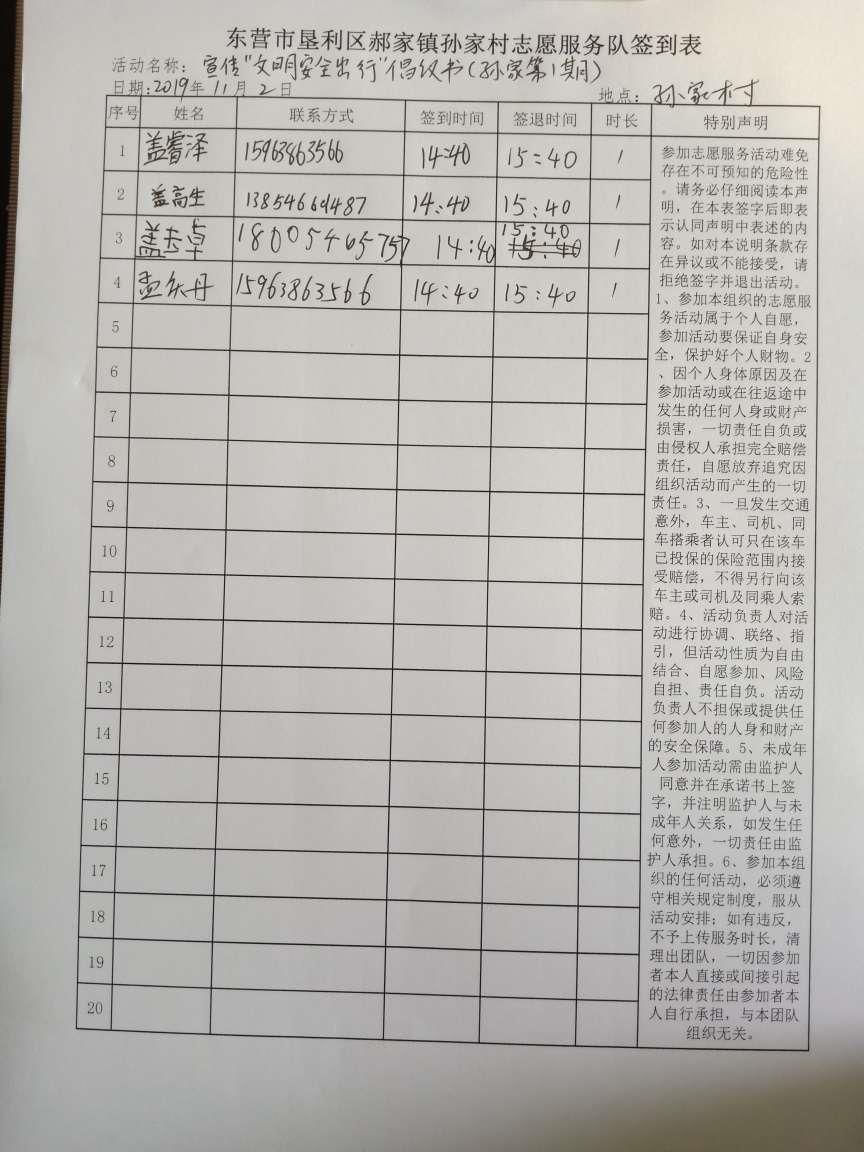 东营市垦利区郝家镇孙家村志愿服务队签到表
活动名称：宣传"文明安全出行"倡议书(孙家第1期)
日期:2019年11月2日 地点：孙家村
序号 姓名 联系方式 签到时间 签退时间 时长 特别声明
1 盖睿泽 15963863566 14:40 15:40 1
2 盖高生 13854660487 14:40 15:40 1
3 18005465757 14:40 15:40 1
4 15963863566 14:40 15:40 1
5
6
7
8
9
10
11
12
13
14
15
16
17
18
19
20
参加志愿服务活动难免
存在不可预知的危险性
。请务必仔细阅读本声
明，在本表签字后即表
示认同声明中表述的内
容。如对本说明条款存
在异议或不能接受，请
拒绝签字并退出活动。
1、参加本组织的志愿服
务活动属于个人自愿，
参加活动要保证自身安
全，保护好个人财物。2
、因个人身体原因及在
参加活动或在往返途中
发生的任何人身或财产
损害，一切责任自负或
由侵权人承担完全赔偿
责任，自愿放弃追究因
组织活动而产生的一切
责任。3、一旦发生交通
意外，车主、司机、同
车搭乘者认可只在该车
已投保的保险范围内接
受赔偿，不得另行向该
车主或司机及同乘人索
赔。4、活动负责人对活
动进行协调、联络、指
引，但活动性质为自由
结合、自愿参加、风险
自担、责任自负。活动
负责人不担保或提供任
何参加人的人身和财产
的安全保障。5、未成年
人参加活动需由监护人
同意并在承诺书上签
字，并注明监护人与未
成年人关系，如发生任
何意外，一切责任由监
护人承担。6、参加本组
织的任何活动，必须遵
守相关规定制度，服从
活动安排；如有违反，
不予上传服务时长，清
理出团队，一切因参加
者本人直接或间接引起
的法律责任由参加者本
人自行承担，与本团队
组织无关。